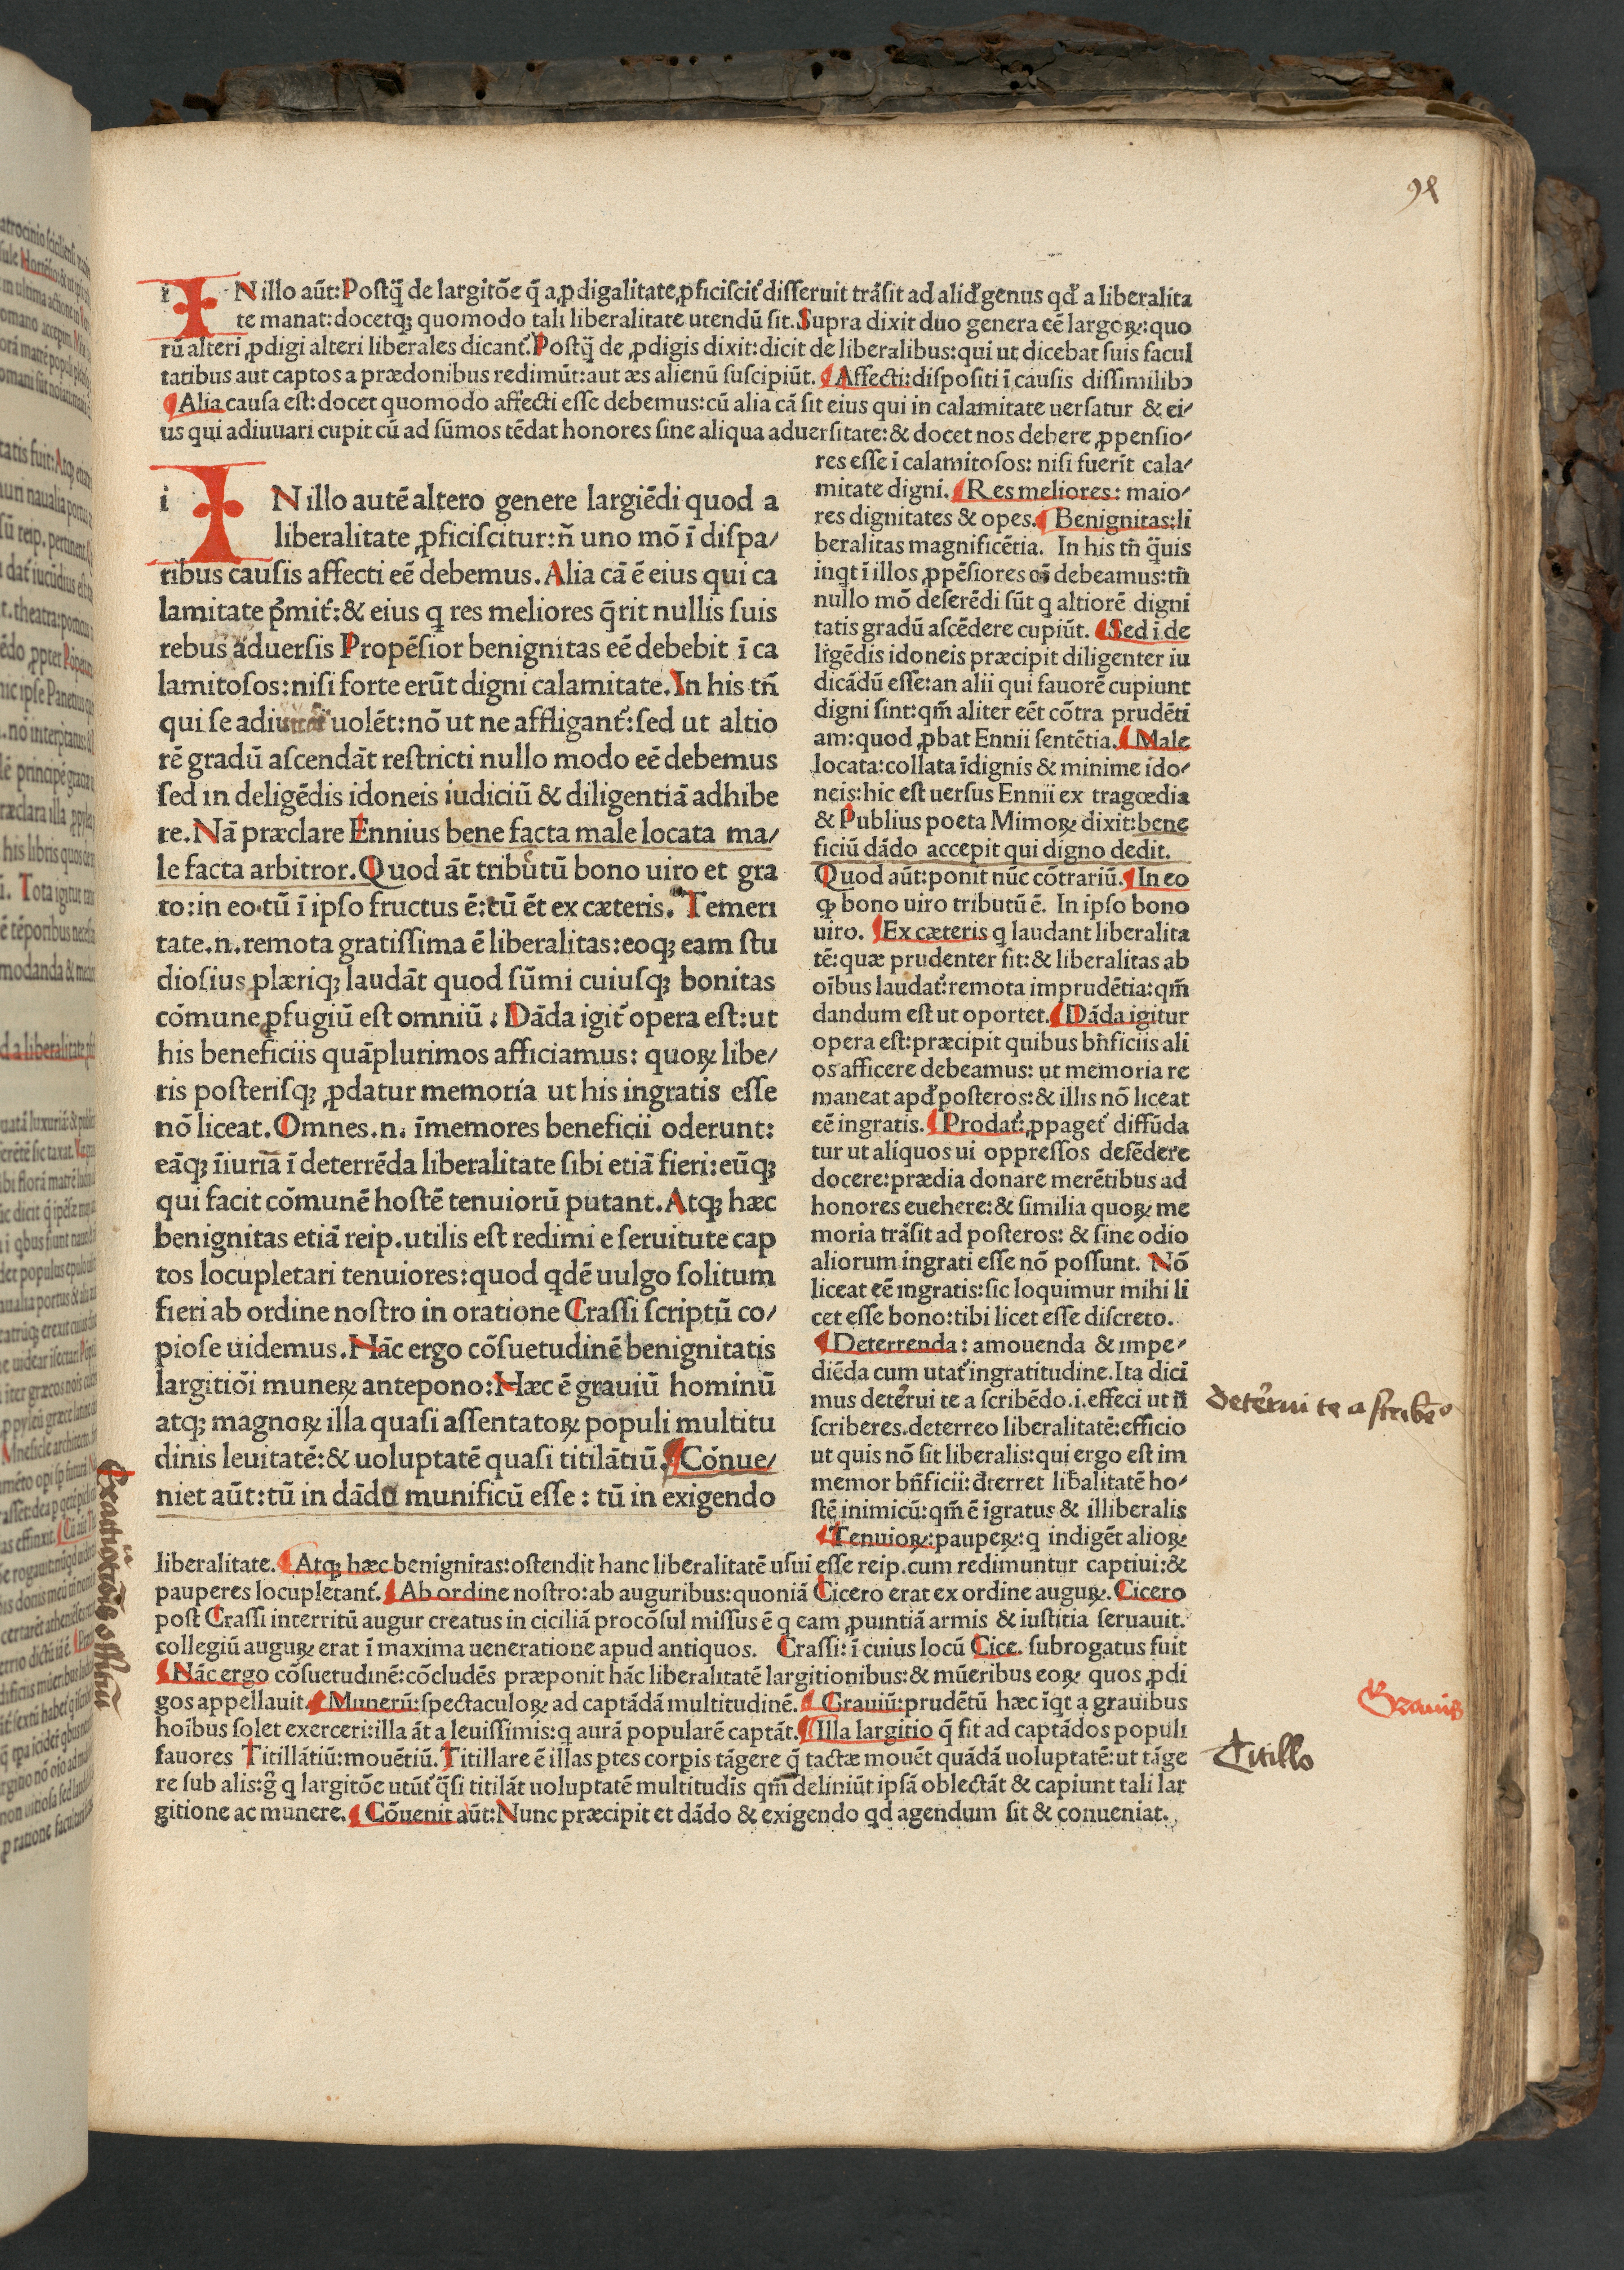 98
I N illo aūt: Postq̄ de largitōe q̄ a ꝓdigalitate ꝓficiscit̉ disseruit trāsit ad alid̉ genus qd̉ a liberalita
te manat: docetq; quomodo tali liberalitate utendū sit. Supra dixit duo genera eē largoꝝ: quo
rū alteri ꝓdigi alteri liberales dicant̉. Postq̄ de ꝓdigis dixit: dicit de liberalibus: qui ut dicebat suis facul
tatibus aut captos a prædonibus redimūt: aut æs alienū suscipiūt. ¶ Affecti: dispositi ī causis dissimilibꝰ
¶ Alia causa est: docet quomodo affecti esse debemus: cū alia cā sit eius qui in calamitate uersatur & ei/
us qui adiuuari cupit cū ad sūmos tēdat honores sine aliqua aduersitate: & docet nos debere ꝓpensio/
i I N illo autē altero genere largiēdi quod a
liberalitate ꝓficiscitur: n̄ uno mō ī dispa/
ribus causis affecti eē debemus. Alia cā ē eius qui ca
lamitate p̄mit̉: & eius q res meliores q̄rit nullis suis
rebus aduersis Propēsior benignitas eē debebit ī ca
lamitosos: nisi forte erūt digni calamitate. In his tn̄
qui se uolēt: nō ut ne affligant̉: sed ut altio
rē gradū ascendāt restricti nullo modo eē debemus
sed in deligēdis idoneis iudiciū & diligentiā adhibe
re. Nā præclare Ennius bene facta male locata ma/
le facta arbitror. Quod āt tributū bono uiro et gra
to: in eo tū ī ipso fructus ē: tū ēt ex cæteris. Temeri
tate .n. remota gratissima ē liberalitas: eoq; eam stu
diosius plæriq; laudāt quod sūmi cuiusq; bonitas
cōmune ꝑfugiū est omniū. Dāda igit̉ opera est: ut
his beneficiis quāplurimos afficiamus: quoꝝ libe/
ris posterisq; ꝓdatur memoria ut his ingratis esse
nō liceat. Omnes .n. īmemores beneficii oderunt:
eāq; īiuriā ī deterrēda liberalitate sibi etiā fieri: eūq;
qui facit cōmunē hostē tenuiorū putant. Atq; hæc
benignitas etiā reip. utilis est redimi e seruitute cap
tos locupletari tenuiores: quod qdē uulgo solitum
fieri ab ordine nostro in oratione Crassi scriptū co/
piose uidemus. Hāc ergo cōsuetudinē benignitatis
largitiōi muneꝝ antepono: Hæc ē grauiū hominū
atq; magnoꝝ illa quasi assentatoꝝ populi multitu
dinis leuitatē: & uoluptatē quasi titilātiū. ¶ Cōnue/
niet aūt: tū in dādo munificū esse: tū in exigendo
res esse ī calamitosos: nisi fuerīt cala/
mitate digni. ¶ Res meliores: maio/
res dignitates & opes. ¶ Benignitas: li
beralitas magnificētia. In his tn̄ q̄uis
inqt ī illos ꝓpēsiores eē debeamus: tn̄
nullo mō deserēdi sūt q altiorē digni
tatis gradū ascēdere cupiūt. ¶ Sed ī de
ligēdis idoneis præcipit diligenter iu
dicādū esse: an alii qui fauorē cupiunt
digni sint: qm̄ aliter eēt cōtra prudēti
am: quod ꝓbat Ennii sentētia. ¶ Male
locata: collata īdignis & minime ido/
neis: hic est uersus Ennii ex tragœdia
& Publius poeta Mimoꝝ dixit: bene
ficiū dādo accepit qui digno dedit.
Quod aūt: ponit nūc cōtrariū. ¶ In eo
ꝙ bono uiro tributū ē. In ipso bono
uiro. ¶ Ex cæteris q laudant liberalita
tē: quæ prudenter fit: & liberalitas ab
oībus laudat̉: remota imprudētia: qm̄
dandum est ut oportet. ¶ Dāda igitur
opera est: præcipit quibus bn̄ficiis ali
os afficere debeamus: ut memoria re
maneat apd̉ posteros: & illis nō liceat
eē ingratis. ¶ Prodat̉: ꝓpaget̉ diffūda
tur ut aliquos ui oppressos defēdere
docere: prædia donare merētibus ad
honores euehere: & similia quoꝝ me
moria trāsit ad posteros: & sine odio
aliorum ingrati esse nō possunt. Nō
liceat eē ingratis: sic loquimur mihi li
cet esse bono: tibi licet esse discreto.
¶ Deterrenda: amouenda & impe/
diēda cum utat̉ ingratitudine. Ita dici
mus det̉rui te a scribēdo .i. effeci ut n̄
scriberes. deterreo liberalitatē: efficio
ut quis nō sit liberalis: qui ergo est im
memor bn̄ficii: d̉terret lib̉alitatē ho/
stē inimicū: qm̄ ē īgratus & illiberalis
¶ Tenuioꝝ: paupeꝝ: q indigēt alioꝝ
liberalitate. ¶ Atq; hæc benignitas: ostendit hanc liberalitatē usui esse reip. cum redimuntur captiui: &
pauperes locupletant̉. ¶ Ab ordine nostro: ab auguribus: quoniā Cicero erat ex ordine auguꝝ. Cicero
post Crassi interritū augur creatus in ciciliā procōsul missus ē q eam ꝓuintiā armis & iustitia seruauit.
collegiū auguꝝ erat ī maxima ueneratione apud antiquos. Crassi: ī cuius locū Cice. subrogatus fuit
¶ Nāc ergo cōsuetudinē: cōcludēs præponit hāc liberalitatē largitionibus: & mūeribus eoꝝ quos ꝓdi
gos appellauit. ¶ Munerū: spectaculoꝝ ad captādā multitudinē. ¶ Grauiū: prudētū hæc īqt a grauibus
hoībus solet exerceri: illa āt a leuissimis: q aurā popularē captāt. ¶ Illa largitio q̄ fit ad captādos populi
fauores Titillātiū: mouētiū. Titillare ē illas ptes corpis tāgere q̄ tactæ mouēt quādā uoluptatē: ut tāge
re sub alis: g̊ q largitōe utūt̉ q̄si titilāt uoluptatē multitudīs qm̄ deliniūt ipsā oblectāt & capiunt tali lar
gitione ac munere. ¶ Cōuenit aūt: Nunc præcipit et dādo & exigendo qd agendum sit & conueniat.
det̉rui te a scribēdo
Grauis
Titillo